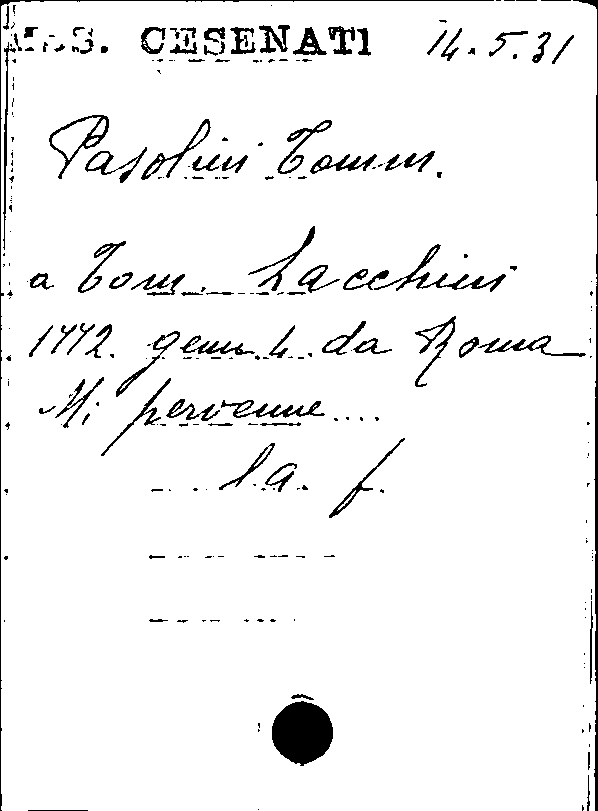 MSS. CESENATI 14.5.31
Pasolini Tomm.
a Tom. Zacchini
1772. genn. 4. da Roma
Mi pervenne....
l.a. f.